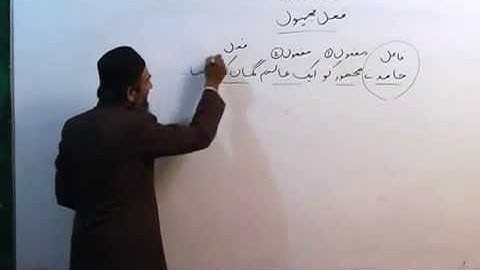 فعل مجہول
فاعل مفعول① مفعول② فعل
حامد نے محمود کو ایک عالم گمان کیا